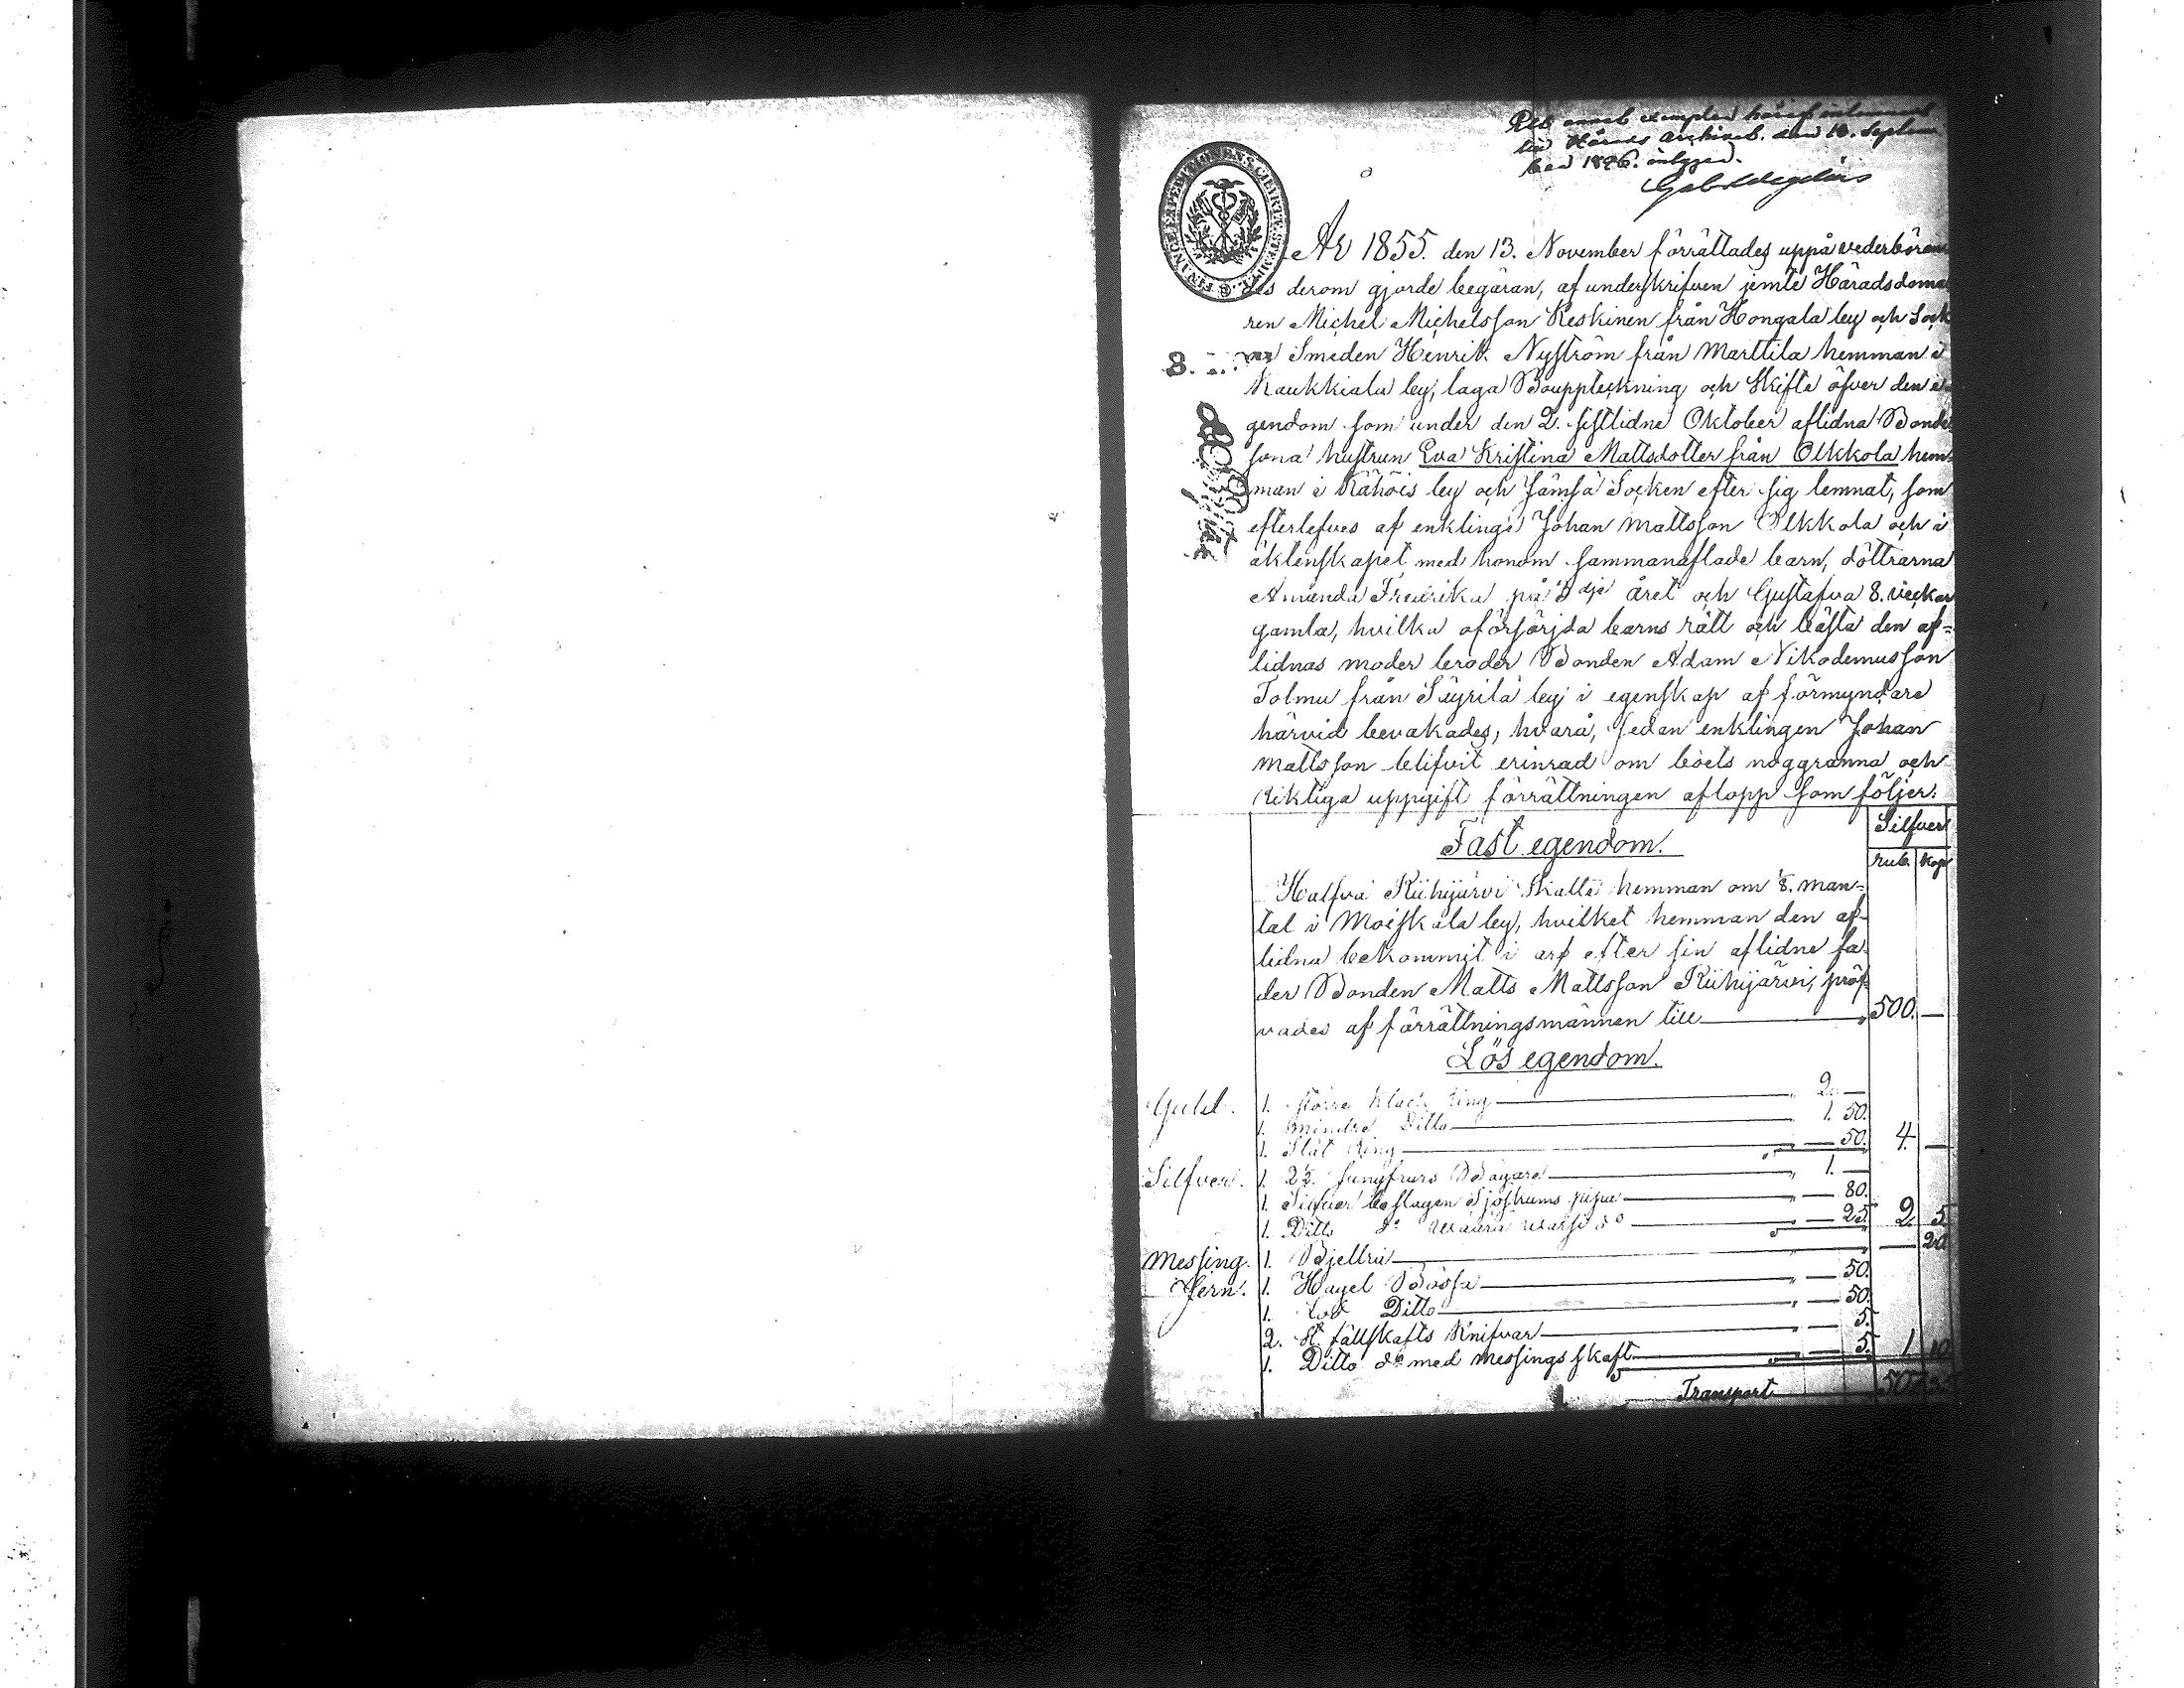 Ett annat exemplar häraf inlemnadt
till Härads Archivet den 10. Septem
ber 1856. intygar.
År 1855. den 13. November förrättades uppå vederböran
des derom gjorde begäran, af underskrifven jemte Häradsdoma
ren Michel Michelsson Keskinen från Hongala by och Sock
Smeden Henrik Nyström från Marttila hemman i
Kaukkiala by, laga Bouppteckning och Skifte öfver den e
gendom som under den 2. sistlidne Oktober aflidna Bonde
sona hustrun Eva Kristina Mattsdotter från Olkkola hem
man i Kähöis by och Jämsä Socken efter sig lemnat, som
efterlefves af enklinge Johan Mattsson Olkkola och i
äktenskapet med honom sammanaflade barn, döttrarna
Amanda Fredrika på 3dje året och Gustafva 8. veckor
gamla, hvilka oförsörjda barns rätt och bästa den af=
lidnas moder broder Bonden Adam Nikodemusson
Tolmu från Säyrilä by i egenskap af förmyndare
härvid bevakades, hvarå, sedan enklingen Johan
Mattsson blifvit erinrad om boets noggranna och
riktiga uppgift förrättningen aflopp som följer:
Silfver
Fast egendom.
rub. kop
Halfva Kiihijärvi Skatte hemman om 1/8. man=
tal i Moiskala by, hvilket hemman den af-
lidna bekommit i arf efter sin aflidne fa-
der Bonden Matts Mattsson Kiihijärvi, pröf-
vades af förrättningsmännen till 500. —
Lös egendom.
Guld. 1. större klack ring 2. —
1. mindre Ditto 1. 50.
1. Slät Ring — 50. 4. —
Silfver. 1. 2½. Jungfrurs Bägare 1. —
1. Silfver beslagen Sjöskums pipa — 80.
1. Ditto do — 25. 2. 5.
Messing. 1. Bjellra — 20
Jern. 1. Hagel Bössa — 50.
1. Lod Ditto — 50.
2. St. fällskafts Knifvar — 5.
1. Ditto do med messings skaft — 5. 1. 10
Transport 507 35